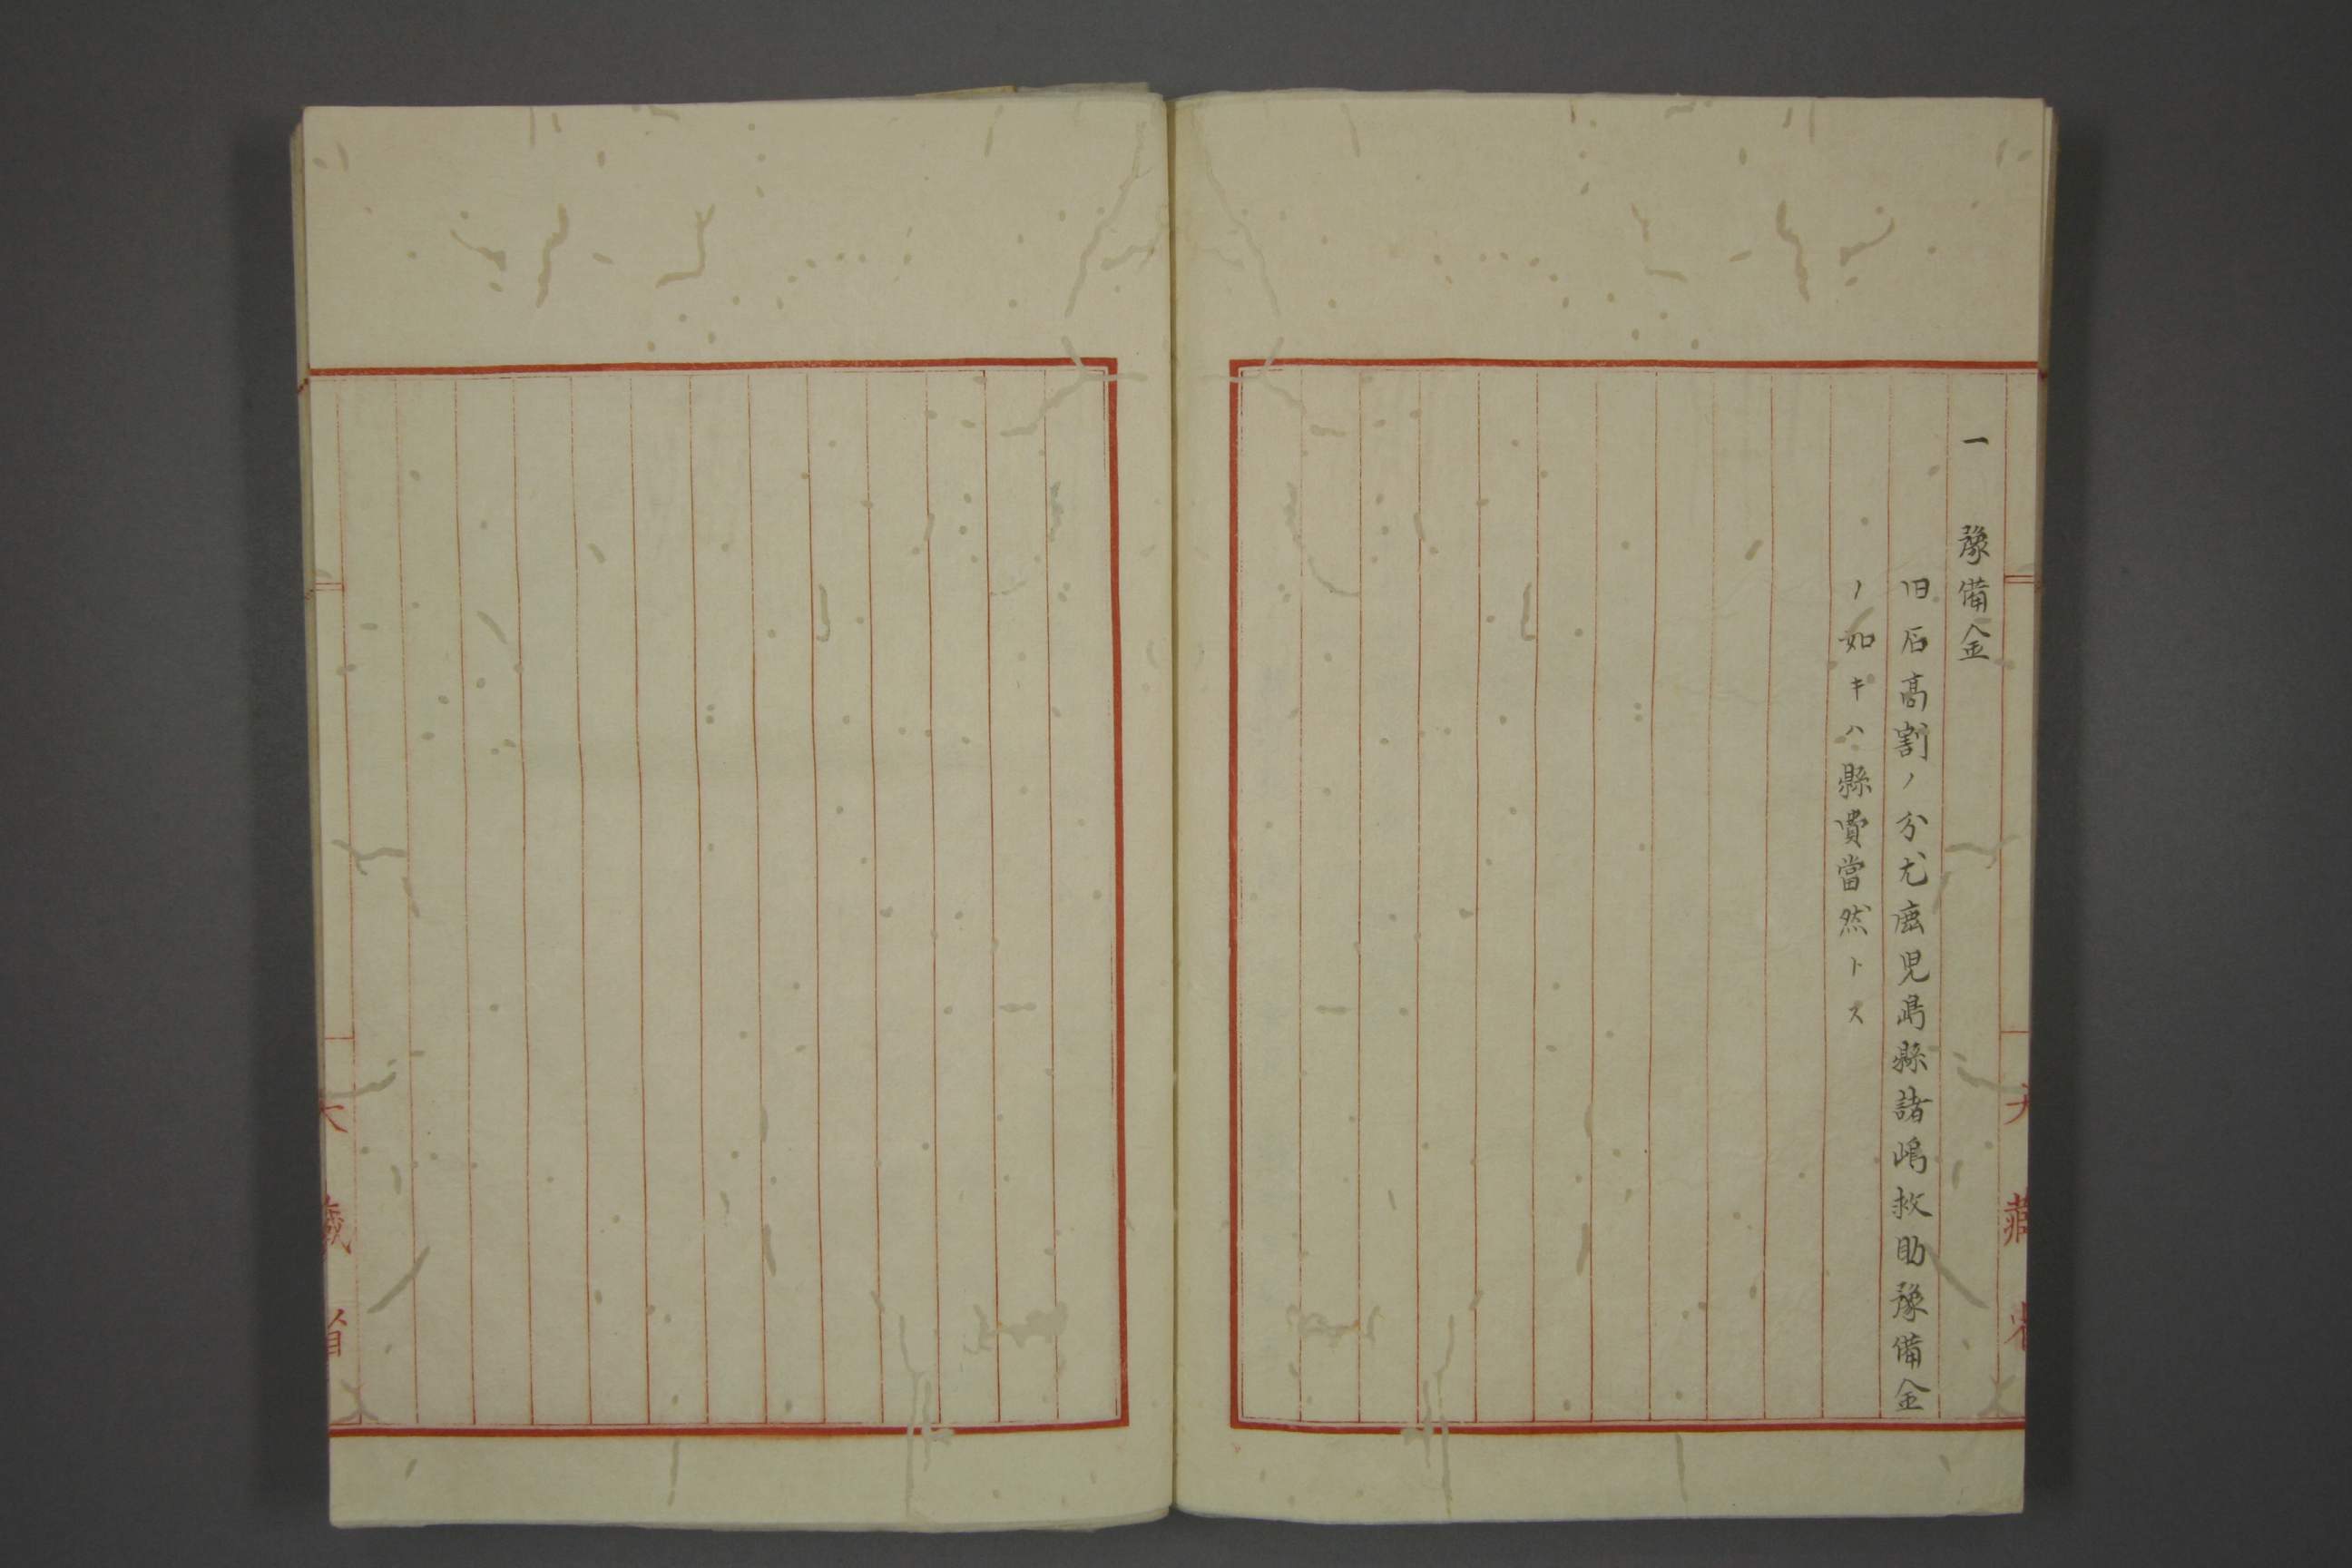 一 豫備金
旧石高割ノ分尤鹿児島縣諸嶋救助豫備金
ノ如キハ縣費當然トス
大藏省
大藏省